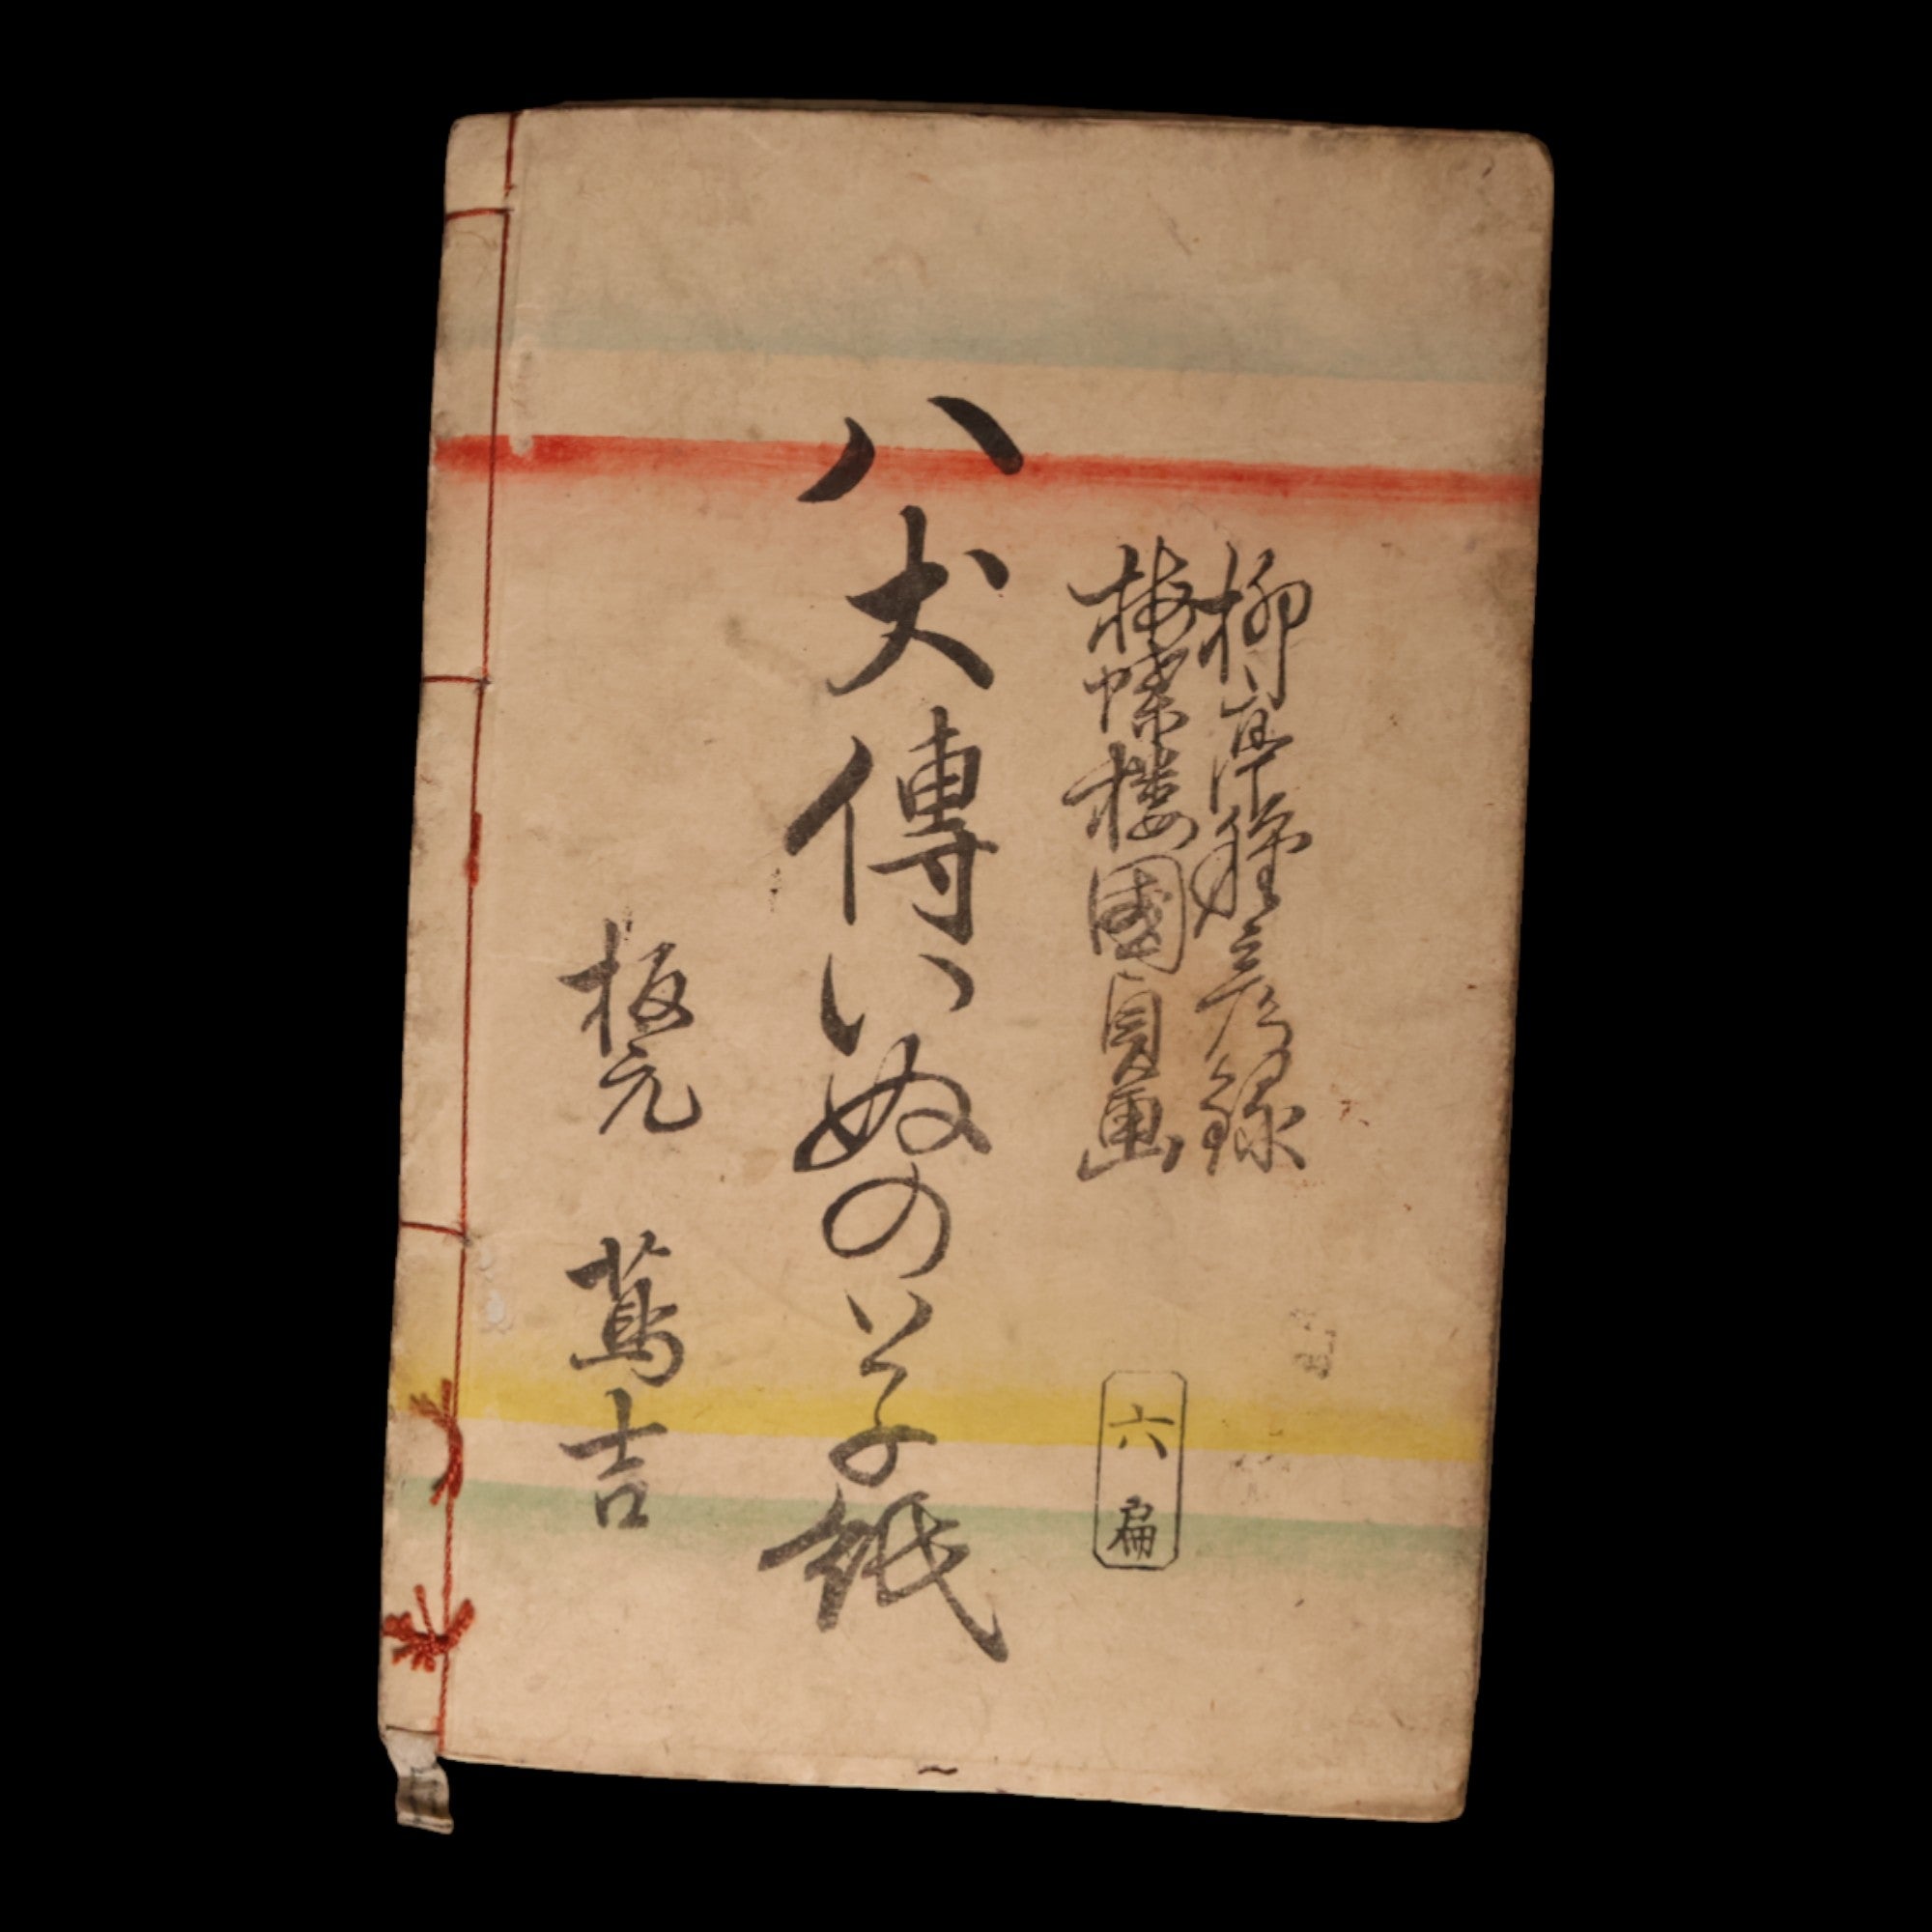 柳亭種彦録
梅蝶楼國貞画
六扁
八犬傳いぬのさう子紙
板元 蔦吉